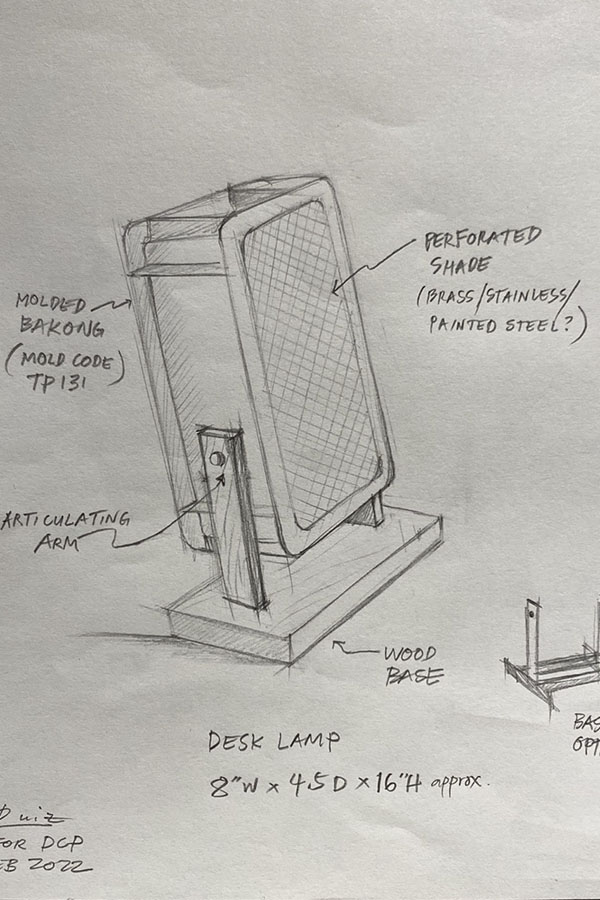 PERFORATED
SHADE
(BRASS/STAINLESS/
PAINTED STEEL?)
MOLDED
BAKONG
(MOLD CODE)
TP131
ARTICULATING
ARM
WOOD
BASE
DESK LAMP
8"W x 4.5 D x 16"H approx.
BAS
OPT
FOR DCP
EB 2022